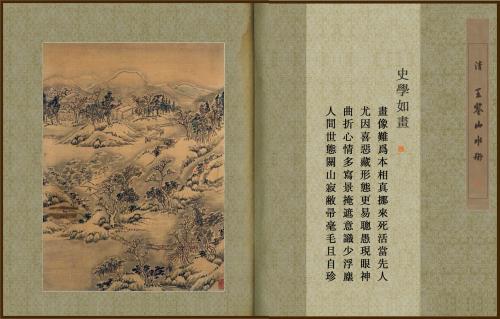 清 王 山水
史學如畫
畫像難爲本相真挪來死活當先人
尤因喜惡藏形態更易聰愚現眼神
曲折心情多寫景掩遮意識少浮塵
人間世態關山寂敝帚毫毛且自珍